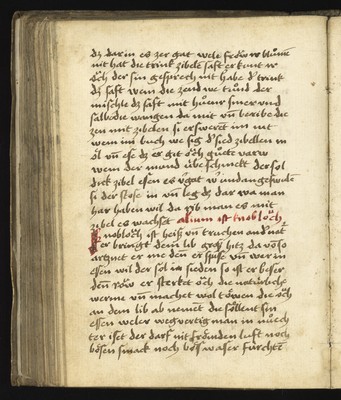 dz dar in es zer gat wele frow ir blumen
nit hat die trink zibele saft er kunt ir
och der sin gesprech nit habe d' trink
dz saft wem die zend we tund der
mischle dz saft mit huner smer vnd
salb die wangen da mit vn beribe die
zen mit zibelen si erswerent im nit
wem im buch we sig d' sied zibellen in
öl vn ese dz es git och gute varw
wem der mund übe schmeckt der sol
dick zibel essen es v'gat
si der stose in vn leg dz dar wa man
har haben wil da rib man es mit
zibel es wachset alium ist knobloch
Knobloch ist heiß vn truchen and' nat
er bringt dem lib groß hitz da von so
artznet er me den er spise vn wer in
essen wil der sol in sieden so ist er beser
den row er sterket och die natürliche
werme vn machet wol töwen die och
an dem lib ab nement die söllent sin
essen weler wegvertig man in nuech
ter iset der darf nit frömden luft noch
bösen smack noch bös waser fürchten